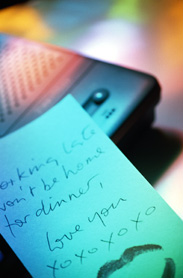 orking late
won't be home
for dinner,
love you
xoxoxoxo